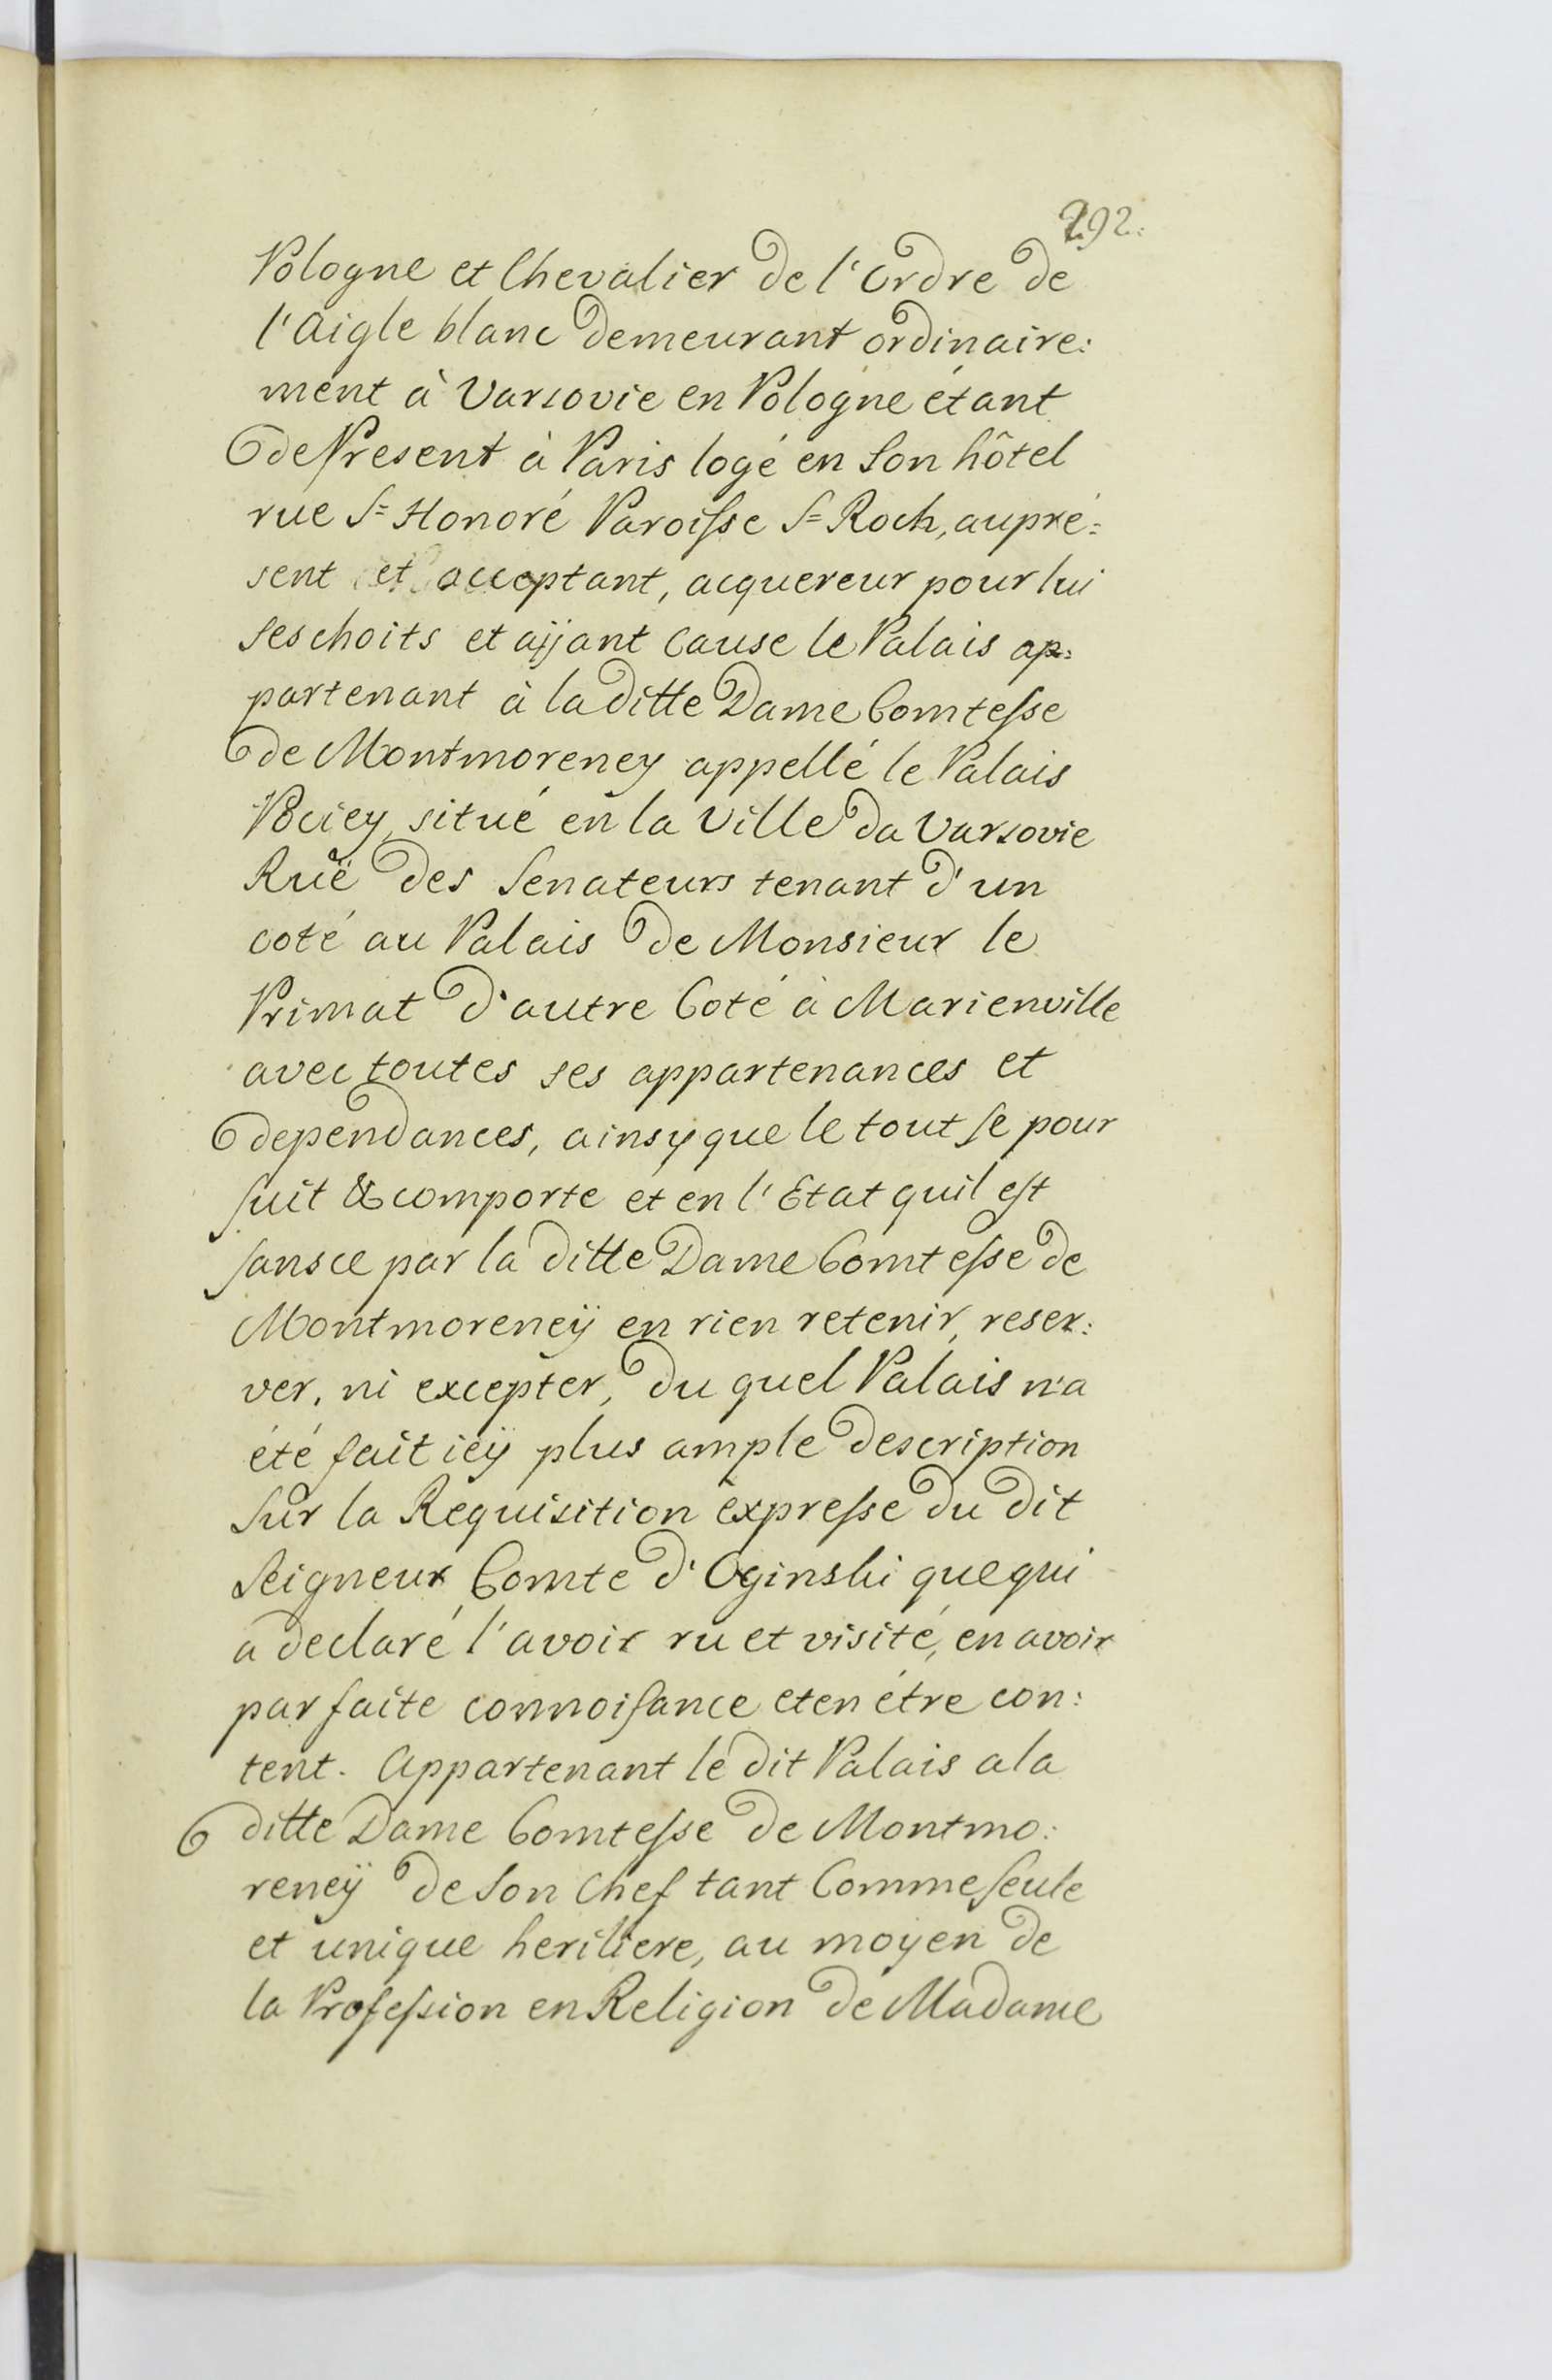 292.
Pologne et Chevalier de l'Ordre de
l'Aigle blanc demeurant ordinaire:
ment à Varsovie en Pologne étant
de Present à Paris logé en Son hôtel
rue S= Honoré Paroisse S= Roch, aupré=
sent et acceptant, acquereur pour lui
ses choits et aÿant Cause le Palais ap:
partenant à la ditte Dame Comtesse
de Montmoreney appellé le Palais
Pociey, situé en la Ville da Varsovie
Ruë des Senateurs tenant d'un
coté au Palais de Monsieur le
Primat d'autre Coté à Marienville
avec toutes ses appartenances et
dependances, ainsy que le tout se pour
suit & comporte et en l'Etat quil est
sans ce par la ditte Dame Comtesse de
Montmoreneÿ en rien retenir, reser:
ver, ni excepter, du quel Palais n'a
été fait icÿ plus ample description
Sur la Requisition expresse du dit
Seigneur Comte d'Oginski que qui
a declaré l'avoir ru et visité, en avoir
parfaite connoisance et en étre con:
tent. Appartenant le dit Palais a la
ditte Dame Comtesse de Montmo:
reneÿ de Son Chef tant Comme Seule
et unique heriliere, au moyen de
la Profession en Religion de Madame